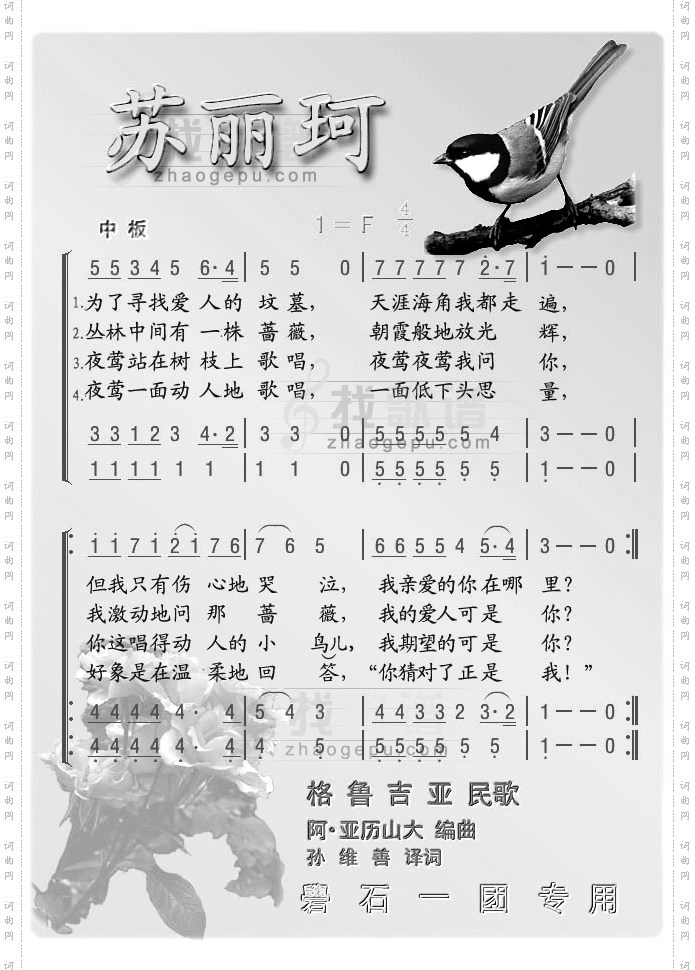 苏丽珂
zhaogepu.com
中板
1=F 4/4
5 5 3 4 5 6·4 | 5 5 0 | 7 7 7 7 7 2·7 | 1 — — 0 |
1.为了寻找爱 人的 坟墓, 天涯海角我都走 遍,
2.丛林中间有 一株 蔷薇, 朝霞般地放光 辉,
3.夜莺站在树 枝上 歌唱, 夜莺夜莺我问 你,
4.夜莺一面动 人地 歌唱, 一面低下头思 量,
找歌谱
zhaogepu.com
3 3 1 2 3 4·2 | 3 3 0 | 5 5 5 5 5 4 | 3 — — 0 |
1 1 1 1 1 1 | 1 1 0 | 5 5 5 5 5 5 | 1 — — 0 |
1 1 7 1 2 1 7 6 | 7 6 5 | 6 6 5 5 4 5·4 | 3 — — 0 :||
但我只有伤 心地 哭 泣, 我亲爱的你在哪 里?
我激动地问 那 蔷 薇, 我的爱人可是 你?
你这唱得动 人的 小 鸟儿, 我期望的可是 你?
好象是在温 柔地 回 答,“你猜对了正是 我!”
4 4 4 4 4· 4 | 5 4 3 | 4 4 3 3 2 3·2 | 1 — — 0 :||
4 4 4 4 4· 4 | 4 5 | 5 5 5 5 5 5 | 1 — — 0 :||
zhaogepu.com
格鲁吉亚民歌
阿·亚历山大 编曲
孙维善 译词
礐石一团专用